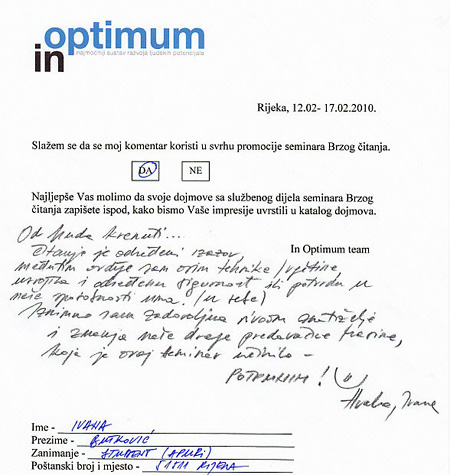 in optimum
najmoćniji sustav razvoja ljudskih potencijala
Rijeka, 12.02- 17.02.2010.
Slažem se da se moj komentar koristi u svrhu promocije seminara Brzog čitanja.
DA NE
Najljepše Vas molimo da svoje dojmove sa službenog dijela seminara Brzog
čitanja zapišete ispod, kako bismo Vaše impresije uvrstili u katalog dojmova.
Od kuda krenuti...
In Optimum team
Čitanje je određeni izazov,
međutim ovdje sam osim tehnike/vještine
i određenu sigurnost ili potvrdu u
neše sposobnosti uma. (u sebe)
Iznimno sam zadovoljna
i znanja naše drage predavačice
koja je ovaj seminar učinila -
POTPUNIM!
Hvala, Ivana
Ime - IVANA
Prezime - BUTKOVIĆ
Zanimanje - STUDENT (APURI)
Poštanski broj i mjesto - 51511 RIJEKA